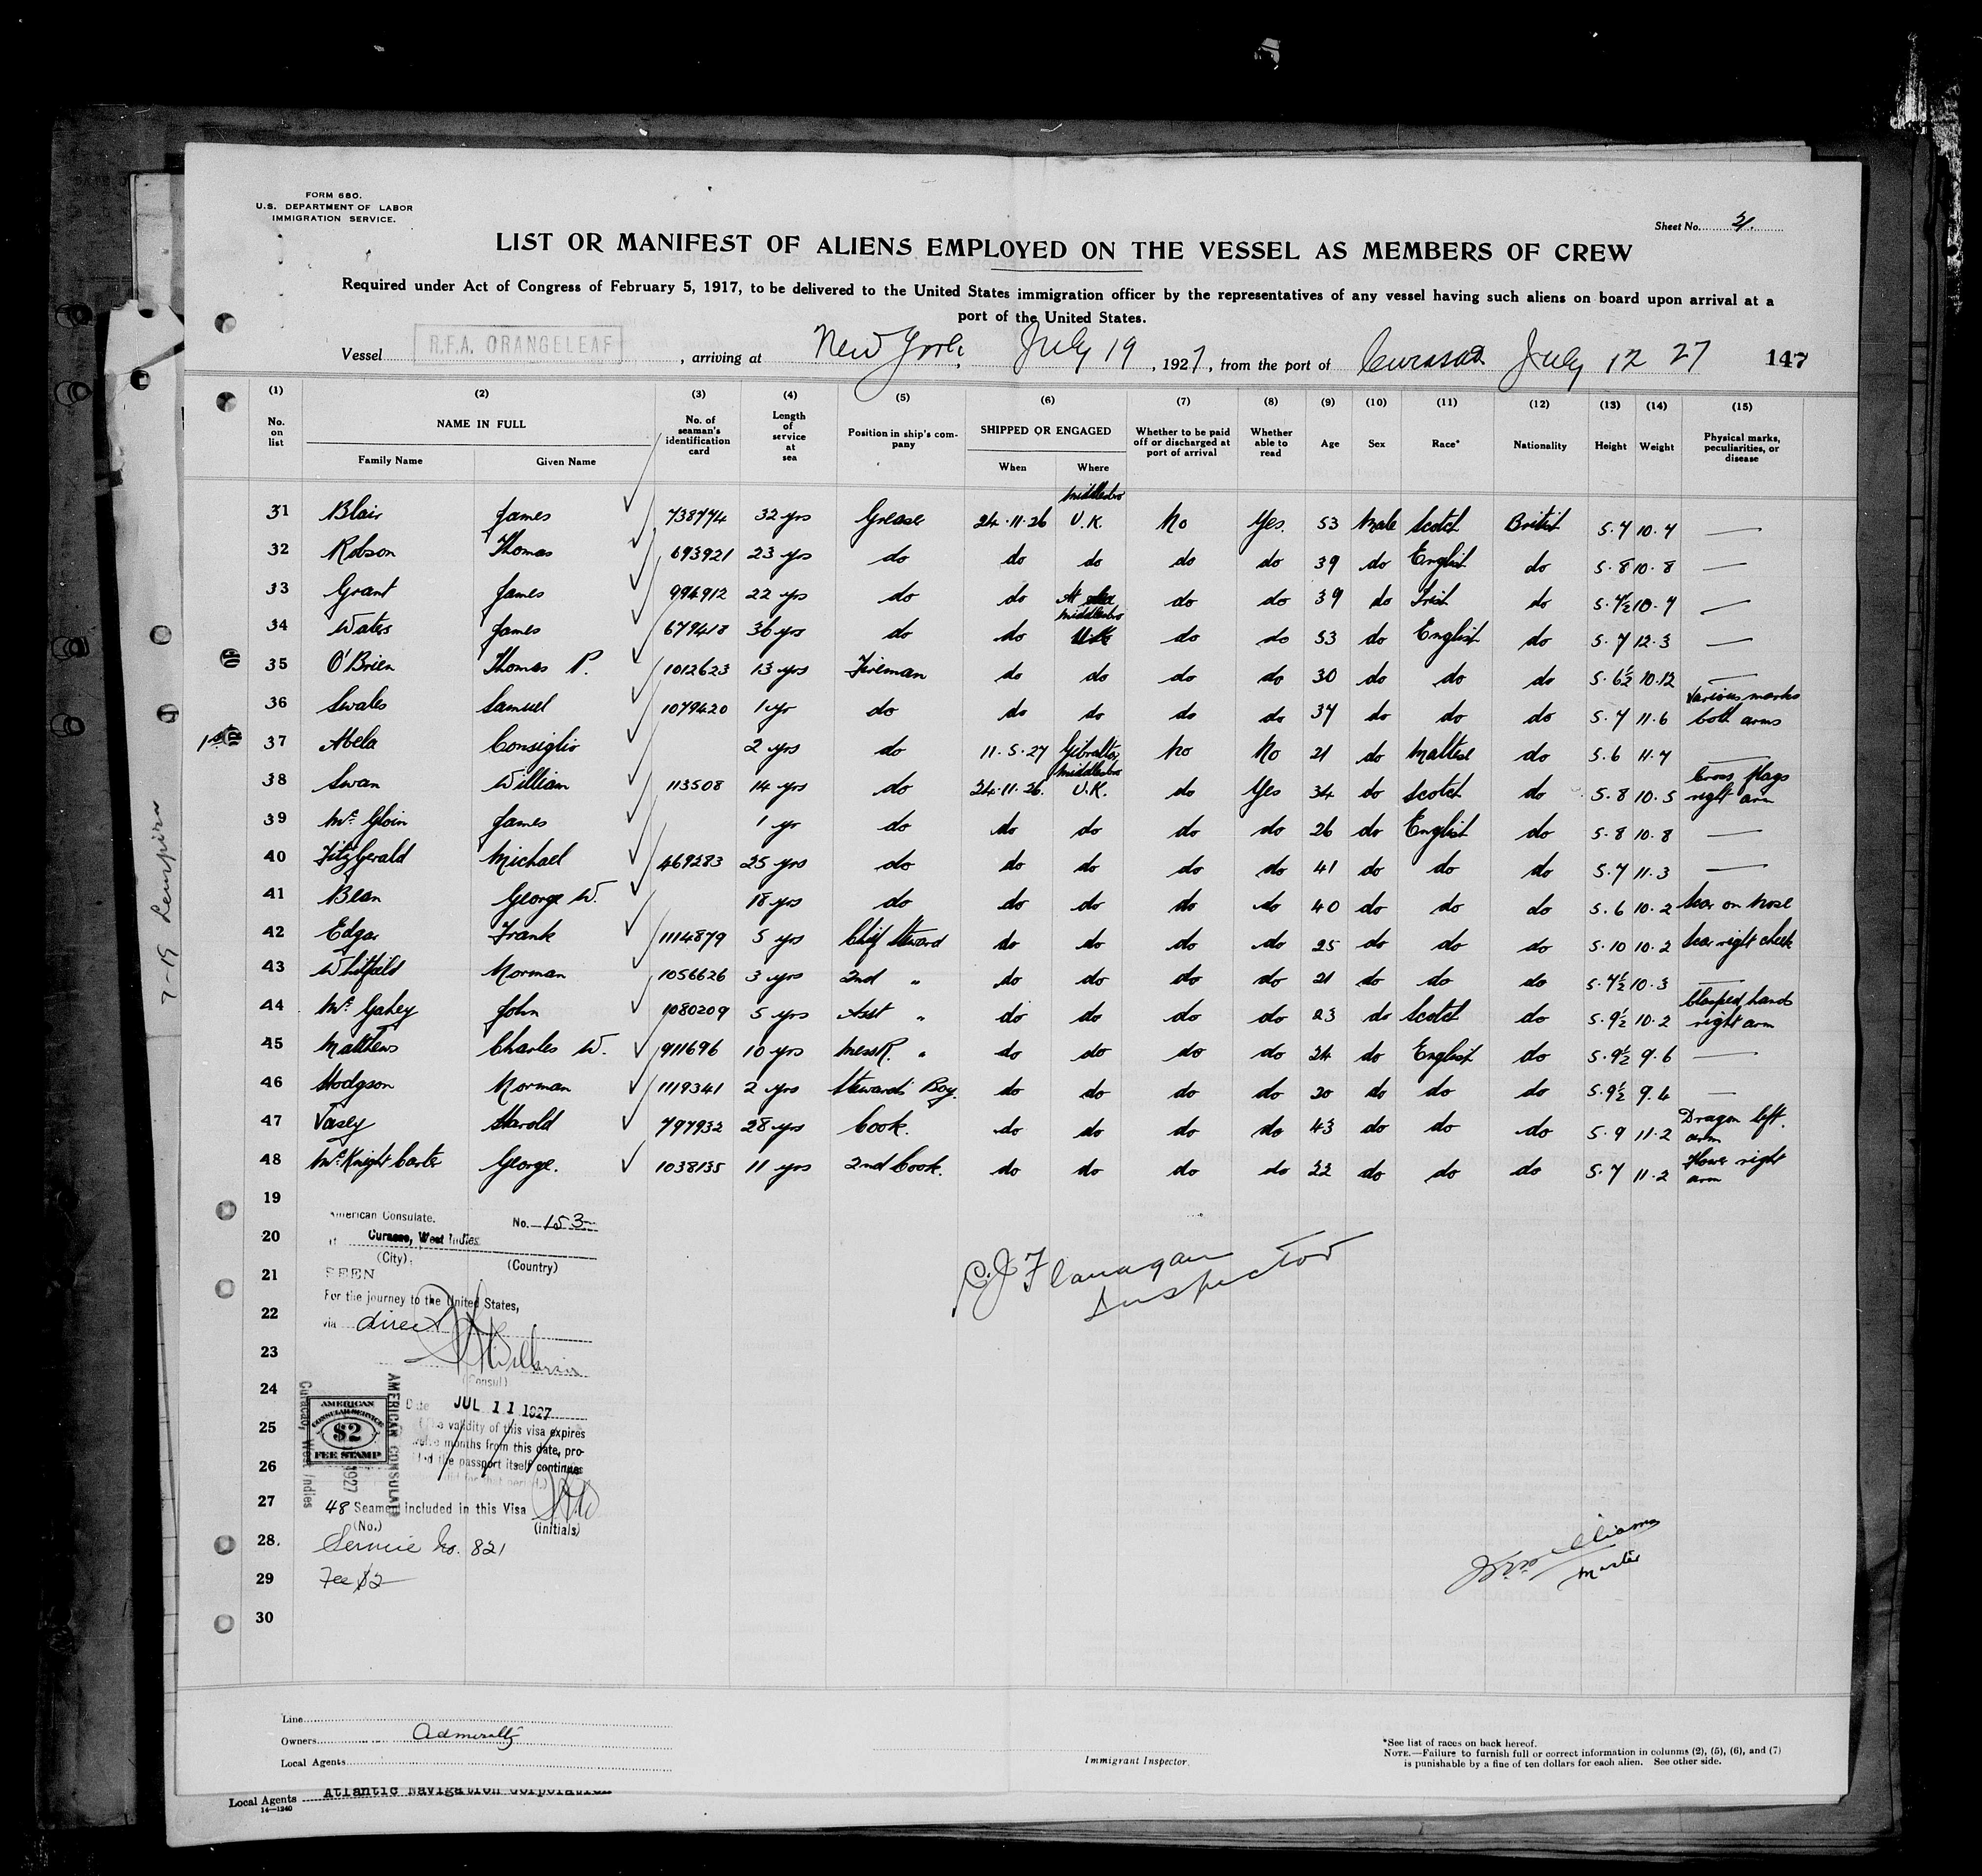 FORM 680.
U.S. DEPARTMENT OF LABOR
IMMIGRATION SERVICE.
Sheet No.
LIST OR MANIFEST OF ALIENS EMPLOYED ON THE VESSEL AS MEMBERS OF CREW
Required under Act of Congress of February 5, 1917, to be delivered to the United States immigration officer by the representatives of any vessel having such aliens on board upon arrival at a
port of the United States.
Vessel R.F.A. ORANGELEAF, arriving at New York, July 19, 1927, from the port of Curasao July 12 27 147
(1) (2) (3) (4) (5) (6) (7) (8) (9) (10) (11) (12) (13) (14) (15)
No. on list NAME IN FULL No. of seaman's identification card Length of service at sea Position in ship's company SHIPPED OR ENGAGED Whether to be paid off or discharged at port of arrival Whether able to read Age Sex Race* Nationality Height Weight Physical marks, peculiarities, or disease
Family Name Given Name When Where
31 Blair James 738774 32 yrs Grease 24.11.26 Middlesbro U.K. No Yes. 53 Male Scotch British 5.7 10.7 —
32 Robson Thomas 693921 23 yrs do do do do do 39 do English do 5.8 10.8 —
33 Grant James 994912 22 yrs do do At do do 39 do Irish do 5.7½ 10.7 —
34 Waters James 679418 36 yrs do do Middlesbro U.K. do do 53 do English do 5.7 12.3 —
35 O'Brien Thomas P. 1012623 13 yrs Fireman do do do do 30 do do do 5.6½ 10.12 —
36 Swales Samuel 1079420 1 yr do do do do do 37 do do do 5.7 11.6 Various marks both arms
37 Abela Consiglio 2 yrs do 11.5.27 Gibraltar No No 21 do Maltese do 5.6 11.7 —
38 Swan William 113508 14 yrs do 24.11.26. Middlesbro U.K. do Yes 34 do Scotch do 5.8 10.5 Cross flags right arm
39 Mc Gloin James 1 yr do do do do do 26 do English do 5.8 10.8 —
40 Fitzgerald Michael 469283 25 yrs do do do do do 41 do do do 5.7 11.3 —
41 Bean George W. 18 yrs do do do do do 40 do do do 5.6 10.2 Scar on nose
42 Edgar Frank 1114879 5 yrs Chief Steward do do do do 25 do do do 5.10 10.2 Scar right cheek
43 Whitfield Norman 1056626 3 yrs 2nd " do do do do 21 do do do 5.7½ 10.3 —
44 Mc Gahey John 1080209 5 yrs Asst " do do do do 23 do Scotch do 5.9½ 10.2 Clasped hands right arm
45 Matthews Charles W. 911696 10 yrs MessR. " do do do do 24 do English do 5.9½ 9.6 —
46 Hodgson Norman 1119341 2 yrs Stewards Boy. do do do do 20 do do do 5.9½ 9.4 —
47 Vasey Harold 797932 28 yrs Cook. do do do do 43 do do do 5.9 11.2 Dragon left. arm
48 Mc Knight Carter George. 1038135 11 yrs 2nd Cook. do do do do 22 do do do 5.7 11.2 Flower right arm
19
20
21
22
23
24
25
26
27
28.
29
30
American Consulate. No. 153
Curacao, West Indies
(City) (Country)
SEEN
For the journey to the United States,
via direct
(Consul)
Date JUL 11 1927
validity of this visa expires
months from this date, pro-
the passport itself continues
AMERICAN CONSULAR SERVICE
$2
FEE STAMP
AMERICAN CONSULATE
Curacao, West Indies
1927
48 Seamen included in this Visa
(No.) (initials)
Service No. 821
Fee $2
C.J. Flanagan
Inspector
Williams
Master
7-19
Line
Owners Admiralty
Local Agents
Immigrant Inspector.
*See list of races on back hereof.
NOTE.—Failure to furnish full or correct information in columns (2), (5), (6), and (7)
is punishable by a fine of ten dollars for each alien. See other side.
Local Agents Atlantic Navigation Corporation
14—1240